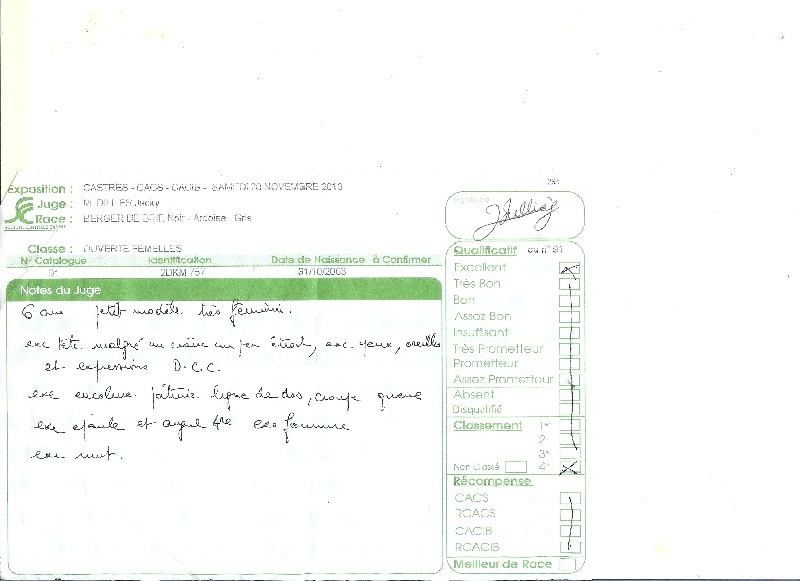 281
Exposition : CASTRES - CACS - CACIB - SAMEDI 20 NOVEMBRE 2010
Juge : M. DILLIES Jacky
Race : BERGER DE BRIE, Noir - Ardoise - Gris
SOCIETE CENTRALE CANINE
Classe : OUVERTE FEMELLES
N° Catalogue Identification Date de Naissance à Confirmer
91 2DKM 757 31/10/2003
Notes du Juge
6 ans petit modèle très féminin.
exc tête malgré un crâne un peu étroit, exc. yeux, oreilles
et expressions D.C.C.
exc encolure poitrine ligne de dos, croupe queue
exc épaule et angul
exc
Signature
Qualificatif du n° 91
Excellent
Très Bon
Bon
Assez Bon
Insuffisant
Très Prometteur
Prometteur
Assez Prometteur
Absent
Disqualifié
Classement 1er
2e
3e
Non Classé 4e
Récompense
CACS
RCACS
CACIB
RCACIB
Meilleur de Race